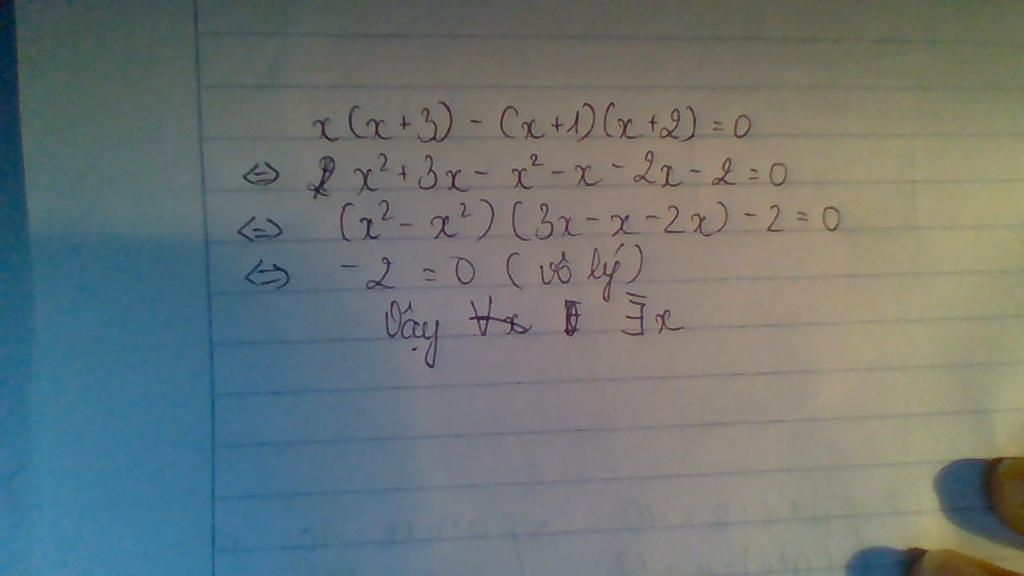 x(x+3) - (x+1)(x+2) = 0
⇔ x² + 3x - x² - x - 2x - 2 = 0
⇔ (x² - x²) (3x - x - 2x) - 2 = 0
⇔ -2 = 0 (vô lý)
Vậy ∃̅x